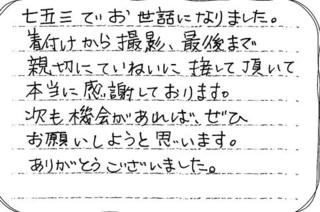 七五三でお世話になりました。
着付けから撮影、最後まで
親切にていねいに接して頂いて
本当に感謝しております。
次も機会があれば、ぜひ
お願いしようと思います。
ありがとうございました。